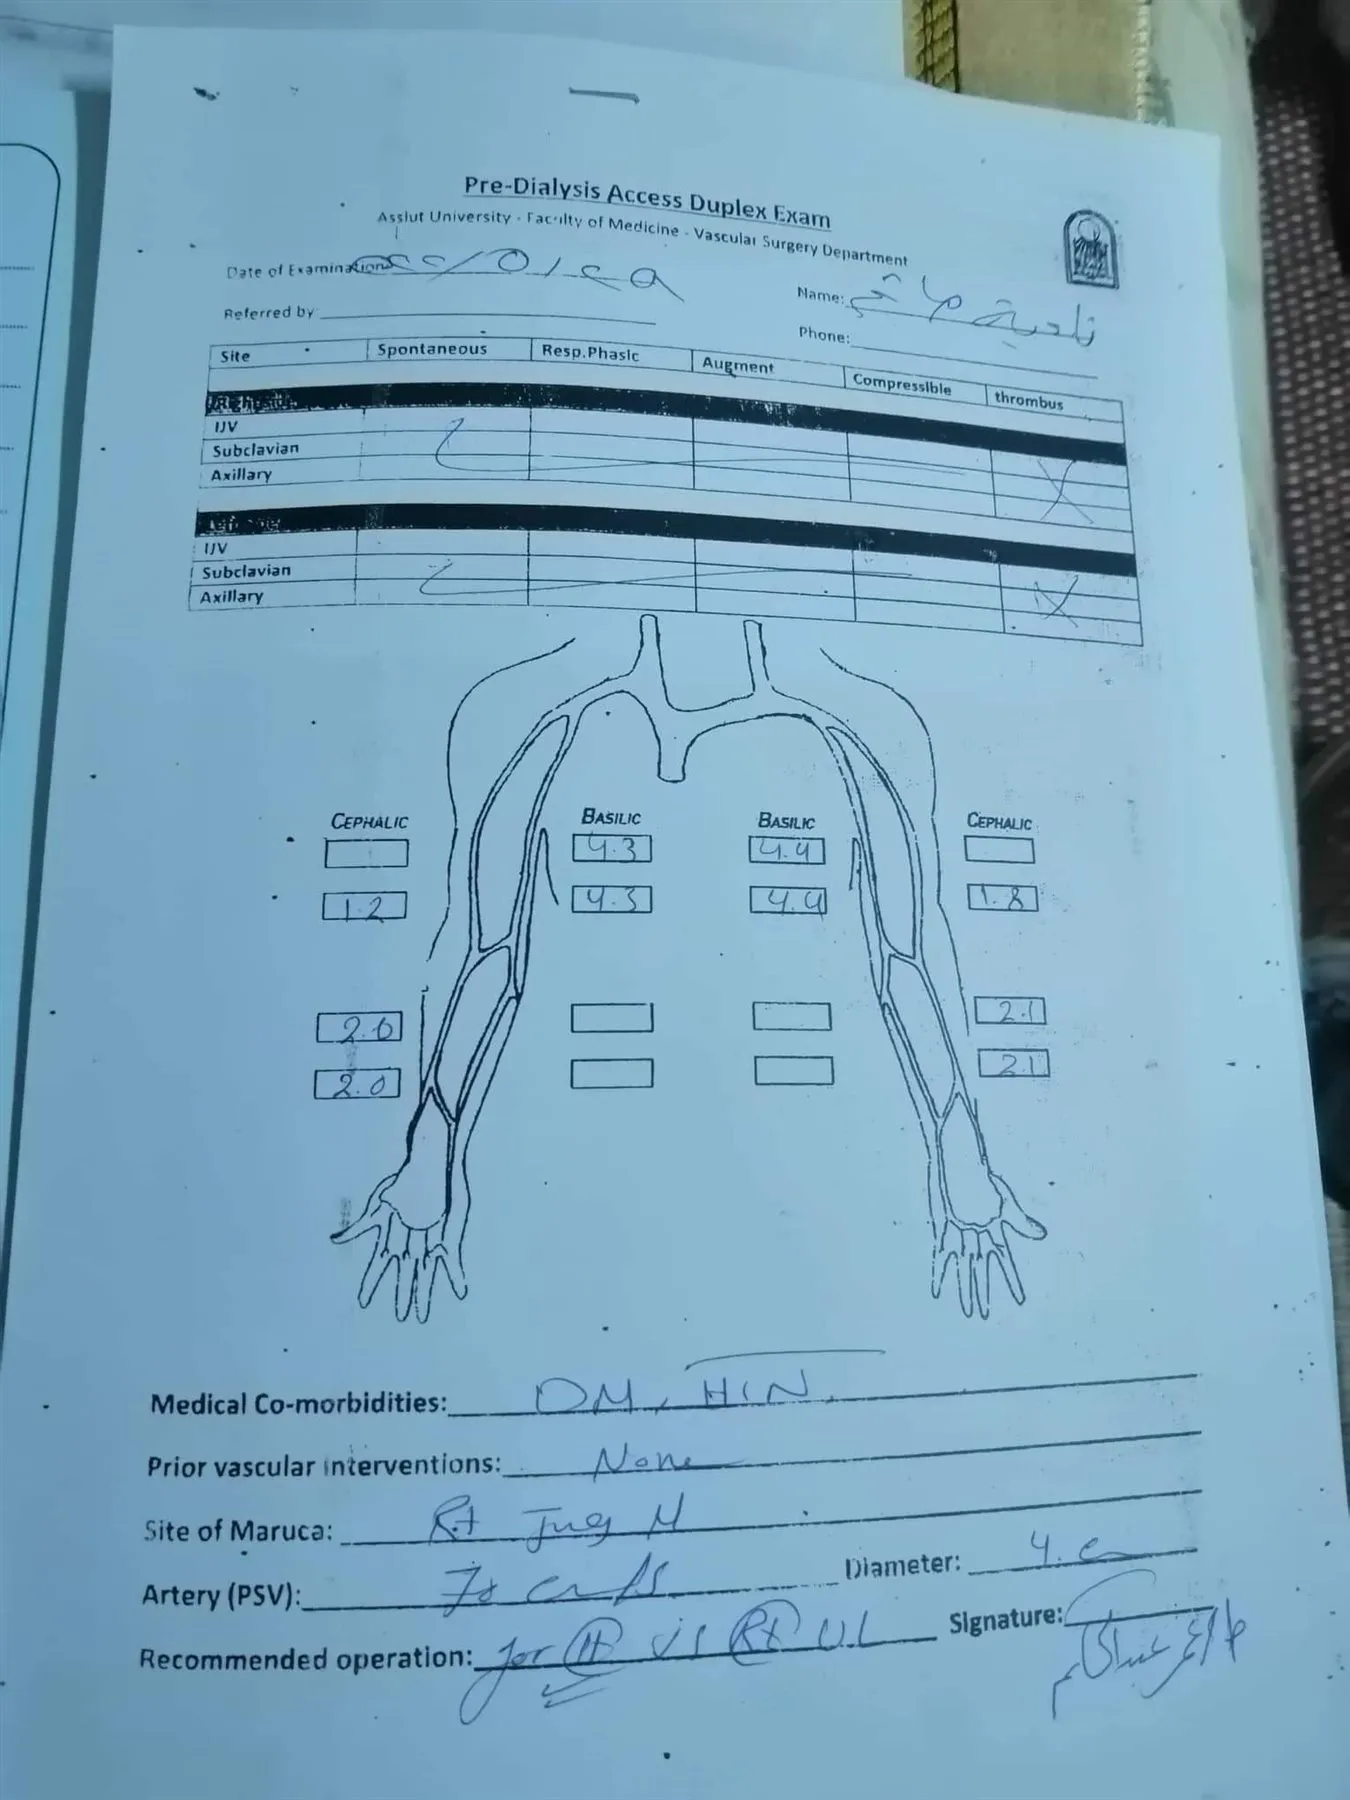 Pre-Dialysis Access Duplex Exam
Assiut University - Faculty of Medicine - Vascular Surgery Department
Date of Examination
Name: نادية
Referred by
Phone:
Site Spontaneous Resp.Phasic Augment Compressible thrombus
IJV
Subclavian
Axillary
IJV
Subclavian
Axillary
CEPHALIC BASILIC BASILIC CEPHALIC
4.3 4.4
1.2 4.3 4.4 1.8
2.0 2.1
2.0 2.1
Medical Co-morbidities: DM, HTN
Prior vascular interventions: None
Site of Maruca: Rt Jug
Artery (PSV): cm/s Diameter:
Recommended operation: for Lt vs Rt UL Signature: